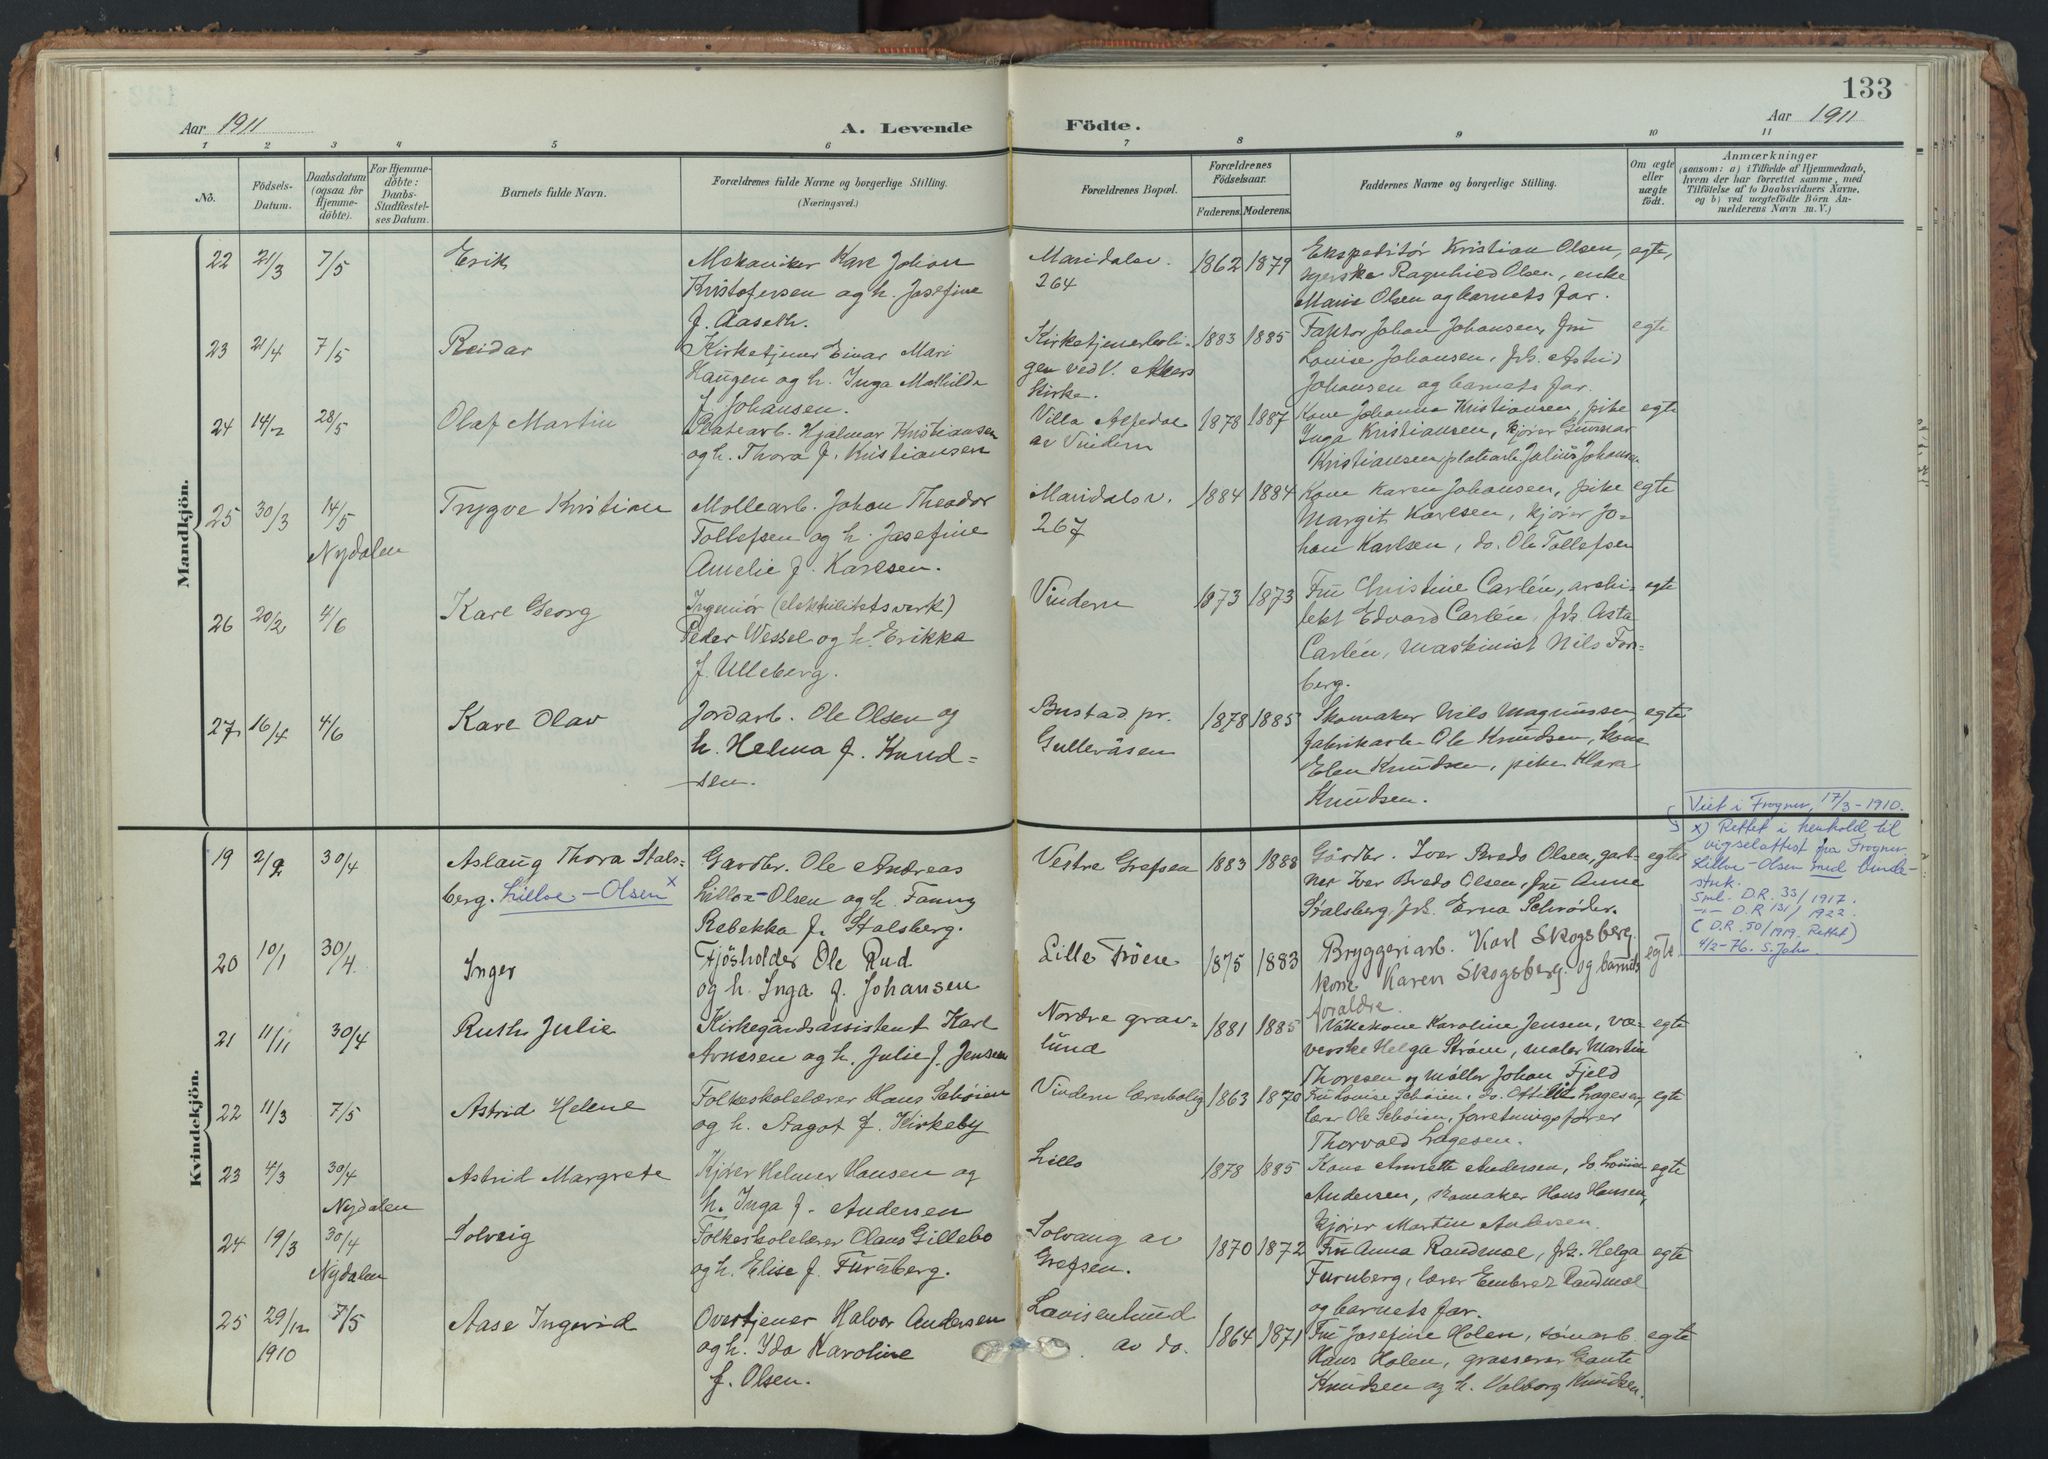 133
Aar 1911
A. Levende
Födte.
Aar 1911
1 2 3 4 5 6 7 8 9 10 11
No.
Födsels-
Datum.
Daabsdatum
(ogsaa for
Hjemme-
döbte).
For Hjemme-
døbte:
Daabs-
Stadfæstel-
ses Datum.
Barnets fulde Navn.
Forældrenes fulde Navne og borgerlige Stilling.
(Næringsvei.)
Forældrenes Bopæl.
Forældrenes
Födselsaar.
Faderens. Moderens.
Faddernes Navne og borgerlige Stilling.
Om ægte
eller
uægte
födt.
Anmærkninger
(saasom: a) i Tilfælde af Hjemmedaab,
hvem der har forrettet samme, med
Tilföielse af to Daabsvidners Navne,
og b) ved uægtefödte Börn An-
melderens Navn m. V.)
Mandkjön.
22 21/3 7/5 Erik
Mekaniker Karl Johan
Kristofersen og h. Josefine
f. Aaseth.
Maridalsv.
264
1862 1879
Ekspeditør Kristian Olsen,
syerske Ragnhild Olsen, enke
Marie Olsen og barnets far.
egte
23 21/4 7/5 Reidar
Kirketjener Einar Mari
Haugen og h. Inga Mathilde
f. Johansen.
Kirketjenerboli-
gen ved V. Akers
Kirke.
1883 1885
Faktor Johan Johansen, fru
Louise Johansen, frk. Astrid
Johansen og barnets far.
egte
24 14/2 28/5 Olaf Martin
Platearb. Hjalmar Kristiansen
og h. Thora f. Kristiansen
Villa
av Vindern
1878 1887
Kone Johanna Kristiansen, pike
Inga Kristiansen, kjører Gunnar
Kristiansen, platearb. Julius Johansen.
egte
25 30/3 14/5 Trygve Kristian
Nydalen
Møllearb. Johan Theodor
Tollefsen og h. Josefine
Amelie f. Karlsen.
Maridalsv.
267
1884 1884
Kone Karen Johansen, pike
Margit Karlsen, kjører Jo-
han Karlsen, do. Ole Tollefsen
egte
26 20/2 4/6 Karl Georg
Ingeniør (elektricitetsverk)
Peder Wessel og h. Erikka
f. Ulleberg.
Vindern
1873 1873
Fru Christine Carlén, arki-
tekt Edvard Carlén, frk. Asta
Carlén, maskinist Nils Fors-
berg.
egte
27 16/4 4/6 Karl Olav
Jordarb. Ole Olsen og
h. Helma f. Knud-
sen.
Bustad pr.
Gulleråsen
1878 1885
Skomaker Nils Magnussen,
fabrikarb. Ole Knudsen, kone
Elen Knudsen, pike Klara
Knudsen.
egte
Kvindekjön.
19 2/2 30/4 Aslaug Thora Stals-
berg. Lilloe-Olsen x
Gardbr. Ole Andreas
Lilloe-Olsen og h. Fanny
Rebekka f. Stalsberg.
Vestre Grefsen
1883 1888
Gårdbr. Iver Bredo Olsen, gart-
ner Iver Bredo Olsen, fru Anne
Stalsberg, frk. Erna Schrøder.
egte
Viet i Frogner, 17/3-1910.
x) Rettet i henhold til
vigselattest fra Frogner.
Lilloe-Olsen med binde-
strek.
Sml. D.R. 33/1917.
-"- D.R 131/1922.
(D.R. 50/1919. Rettet)
4/2-76. S. Jahr.
20 10/1 30/4 Inger
Fjøsholder Ole Rud
og h. Inga f. Johansen
Lille Frøen
1875 1883
Bryggeriarb. Karl Skogsberg.
kone Karen Skogsberg. og barnets
foraldre.
egte
21 11/11 30/4 Ruth Julie
Kirkegårdsassistent Karl
Arnesen og h. Julie f. Jensen
Nordre grav-
lund
1881 1885
Våkekone Karoline Jensen, væ-
verske Helga Strøm, maler Martin
Thoresen og møller Johan Fjeld
egte
22 11/3 7/5 Astrid Helene
Folkeskolelærer Hans Schøien
og h. Aagot f. Kirkeby
Vindern lærerbolig
1863 1870
Fru Louise Schøien, do. Ottilie Lagesen,
lærer Ole Schøien, forretningsfører
Thorvald Lagesen.
egte
23 4/3 30/4 Astrid Margrete
Nydalen
Kjører Helmer Hansen og
h. Inga f. Andersen
Lillo
1878 1885
Kone Annette Andersen, do. Louise
Andersen, skomaker Hans Hansen,
kjører Martin Andersen.
egte
24 19/3 30/4 Solveig
Nydalen
Folkeskolelærer Olaus Gillebo
og h. Elise f. Furuberg.
Solvang av
Grefsen.
1870 1872
Fru Anna Randmæl, frk. Helga
Furuberg, lærer Embret Randmæl
og barnets far.
egte
25 29/12 7/5 Aase Ingerid
1910
Overtjener Halvor Andersen
og h. Ida Karoline
f. Olsen.
Lovisenlund
av do.
1864 1871
Fru Josefine Holen, tømarb.
Hans Holen, grosserer Gaute
Knudsen og h. Valborg Knudsen.
egte